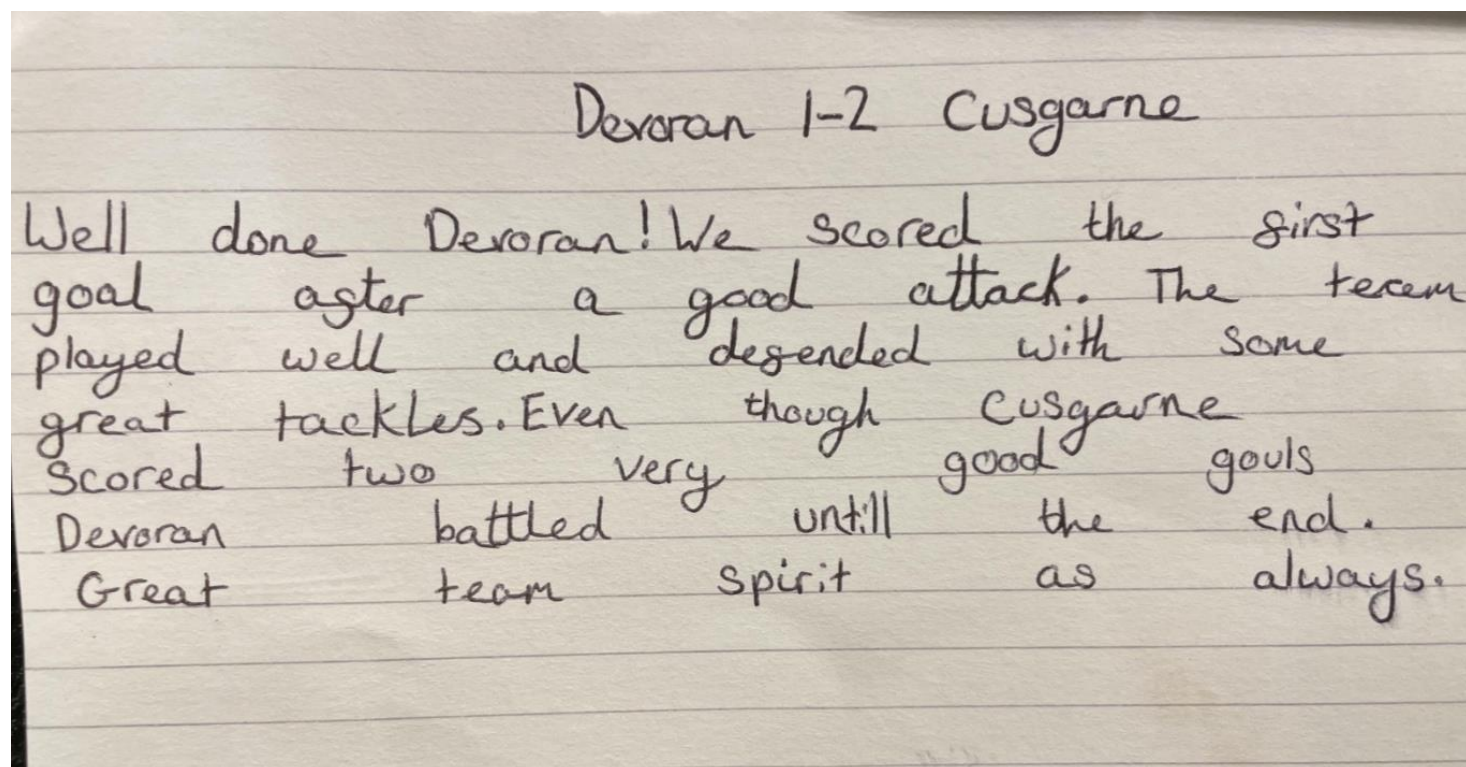 Devoran 1-2 Cusgarne
Well done Devoran! We scored the first
goal after a good attack. The team
played well and defended with some
great tackles. Even though Cusgarne
scored two very good gouls
Devoran battled untill the end.
Great team spirit as always.